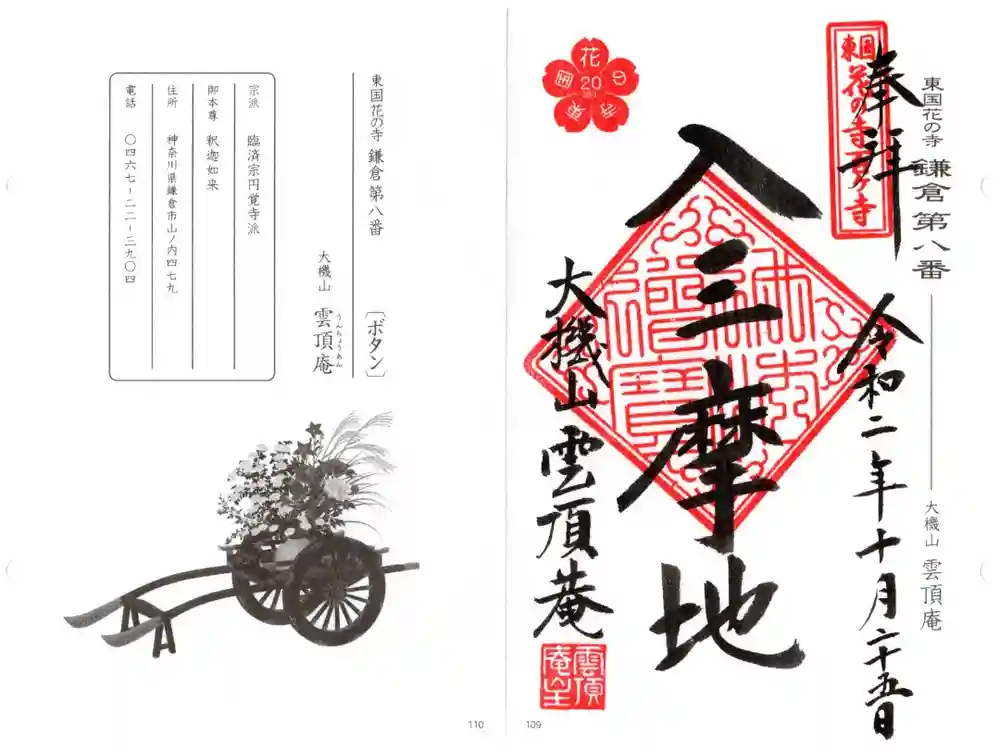 東国花の寺 鎌倉第八番
大機山 雲頂庵
東国花の寺百ヶ寺
奉拝
令和二年十月二十五日
入三摩地
大機山 雲頂庵
109
東国花の寺 鎌倉 第八番 〔ボタン〕
大機山 雲頂庵
うんちょうあん
宗派 臨済宗円覚寺派
御本尊 釈迦如来
住所 神奈川県鎌倉市山ノ内四七九
電話 〇四六七-二二-三九〇四
110